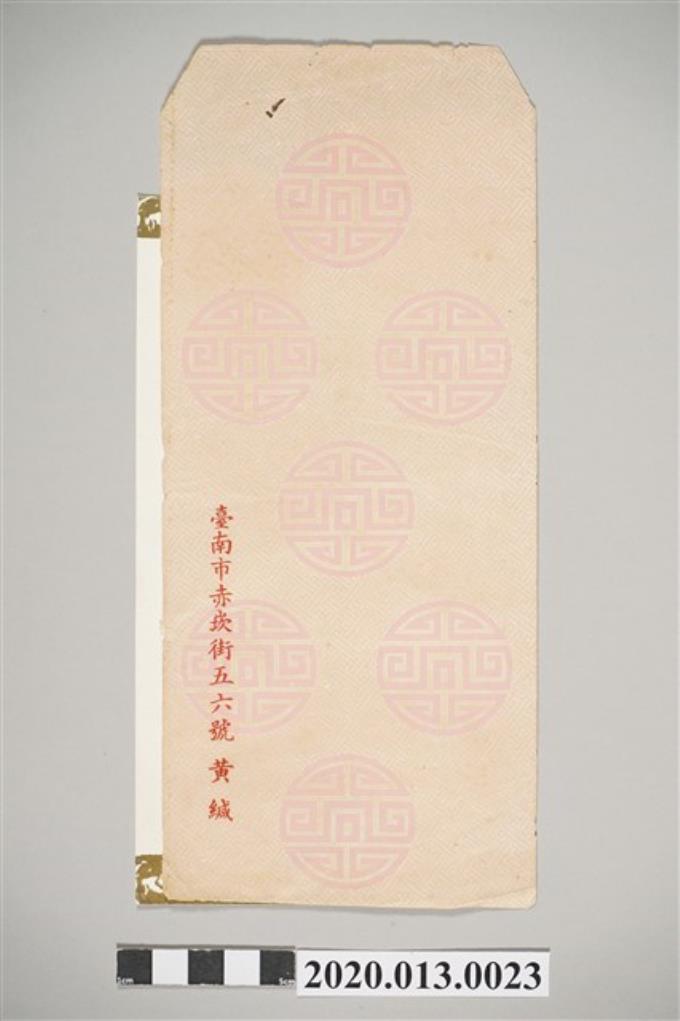 臺南市赤崁街五六號 黃緘
5cm
5cm
2020.013.0023